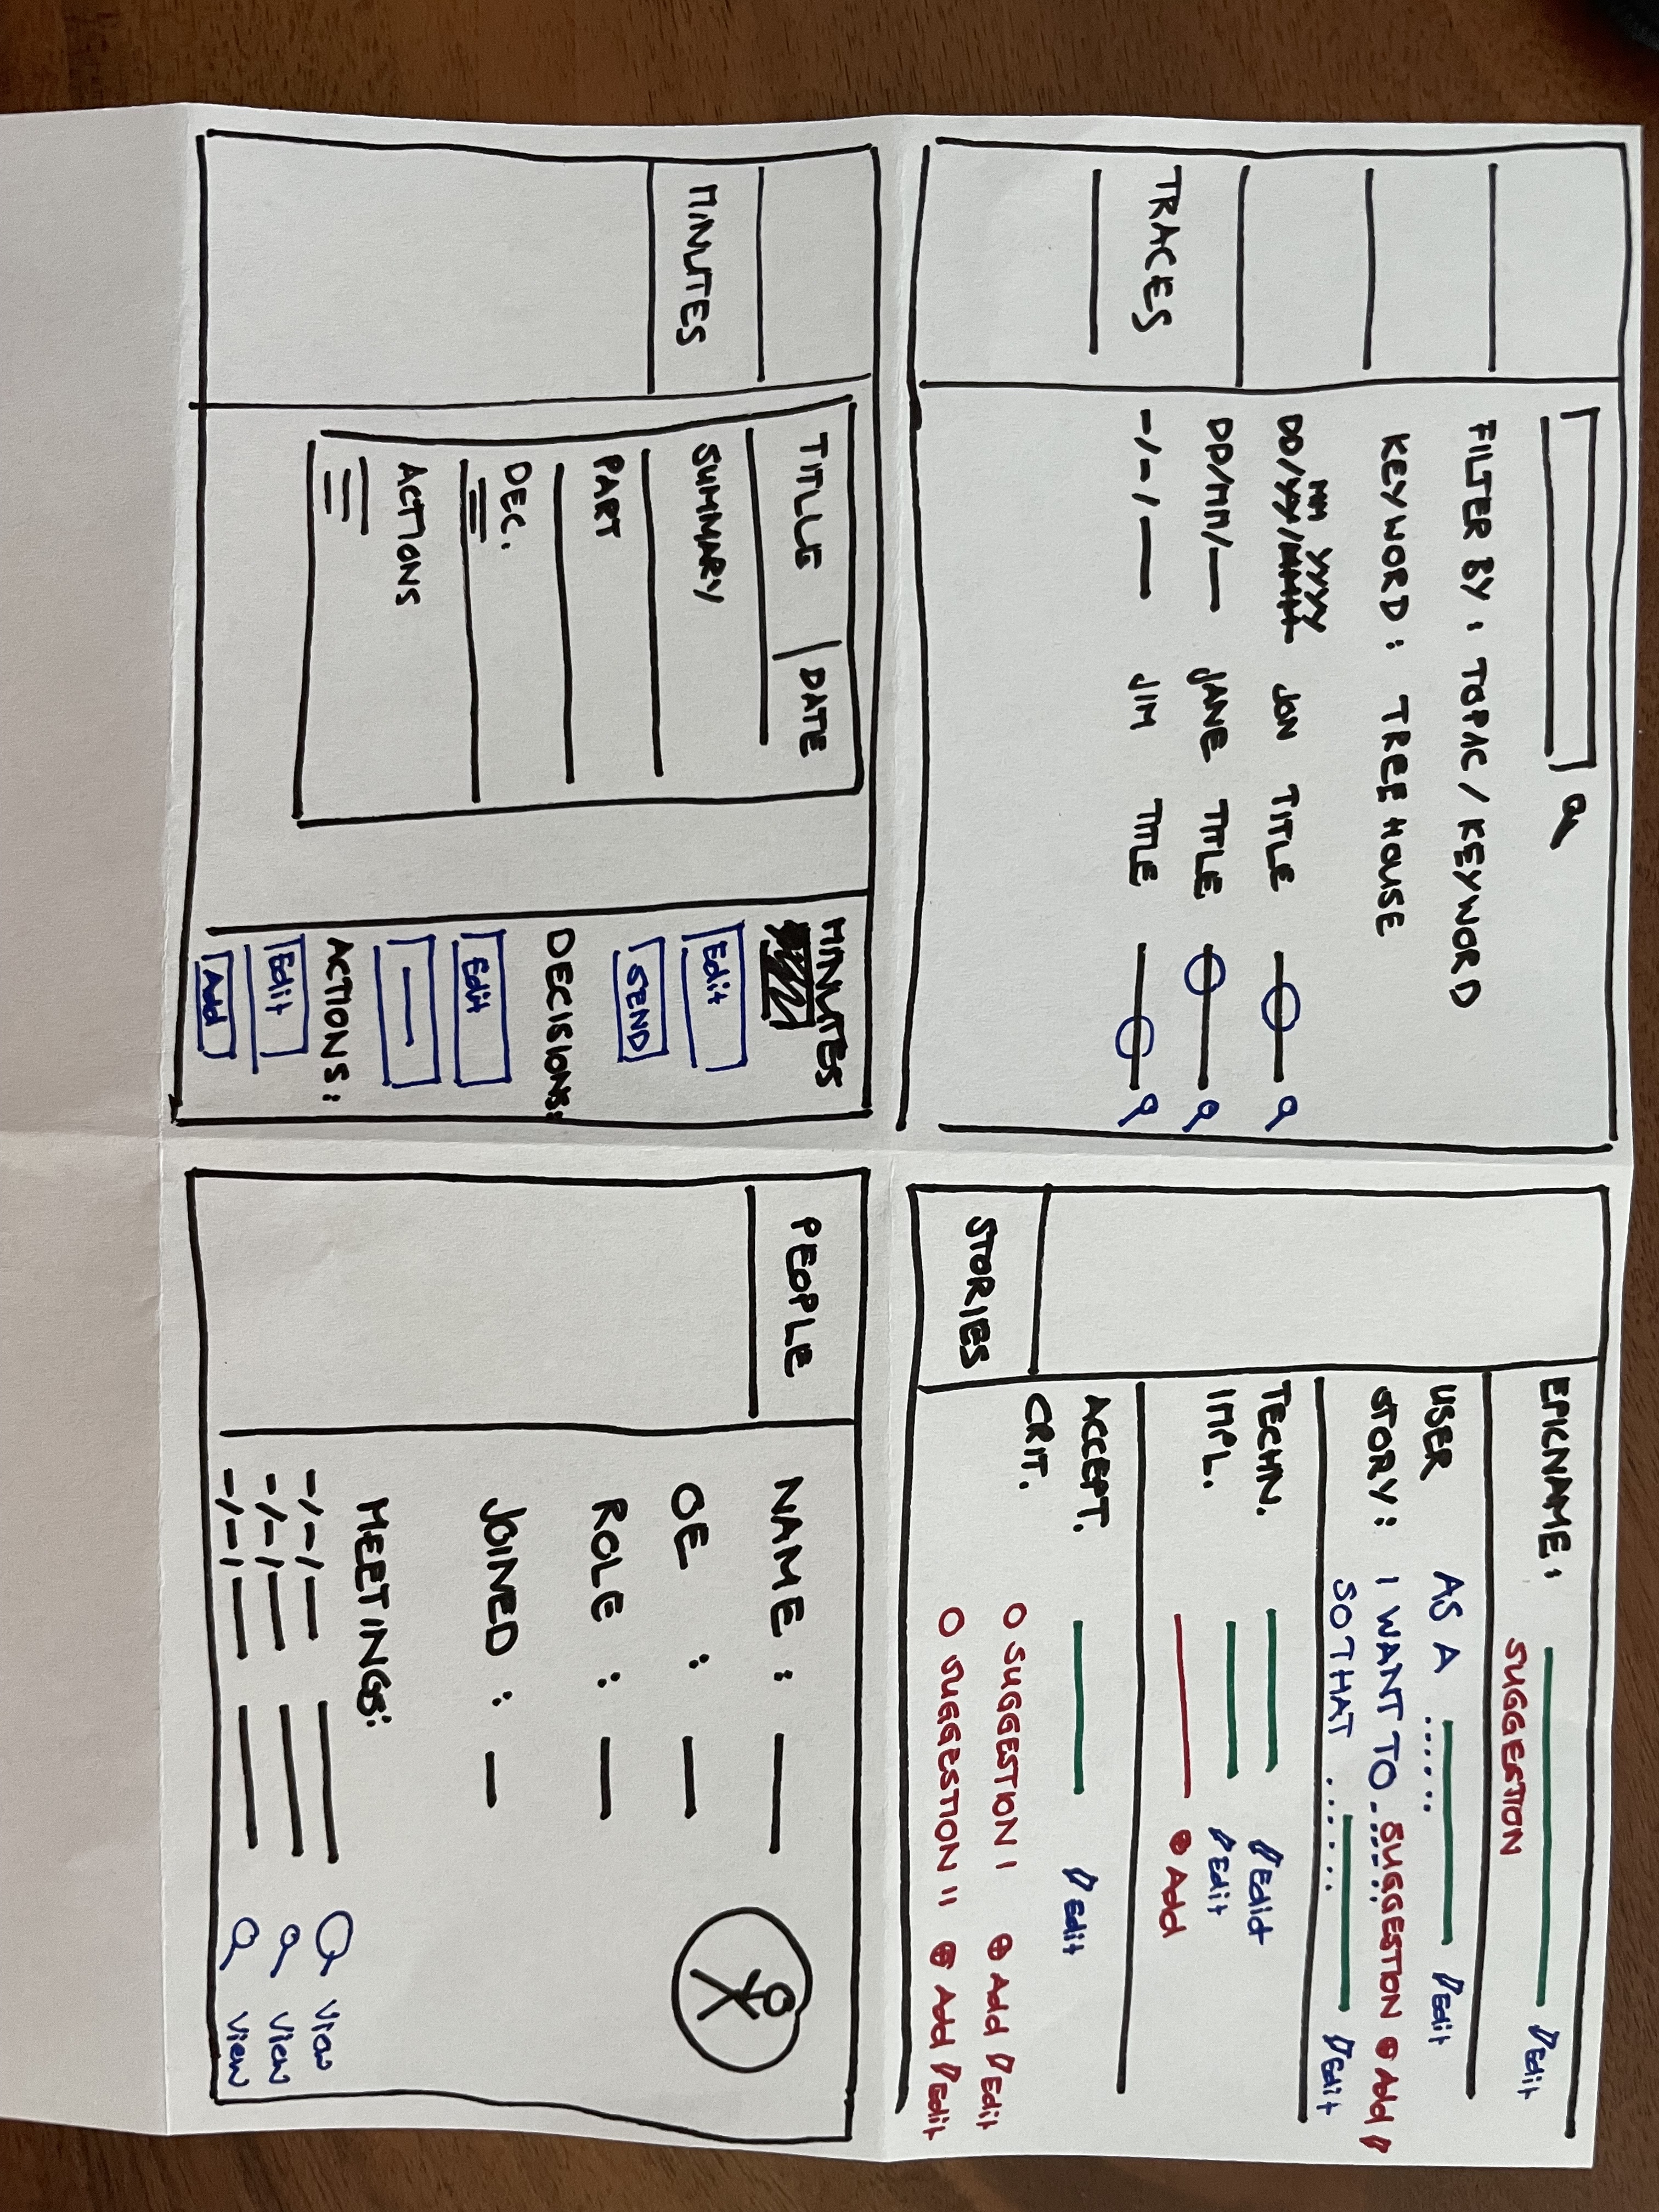 TRACES
FILTER BY : TOPIC / KEYWORD
KEYWORD : TREE HOUSE
MM YYYY
DD/YY/ JON TITLE
DD/MM/— JANE TITLE
-/-/— JIM TITLE
STORIES
EPICNAME : Edit
SUGGESTION
USER AS A ..... Edit
STORY : I WANT TO ..... SUGGESTION Add
SO THAT ...... Edit
TECHN. Edit
IMPL. Edit
Add
ACCEPT. Edit
CRIT.
SUGGESTION I Add Edit
SUGGESTION II Add Edit
MINUTES
TITLE | DATE
SUMMARY
PART
DEC.
ACTIONS
MINUTES
Edit
SEND
DECISIONS:
Edit
ACTIONS:
Edit
Add
PEOPLE
NAME : —
OE : —
ROLE : —
JOINED : —
MEETINGS:
-/-/— View
-/-/— View
-/-/— View